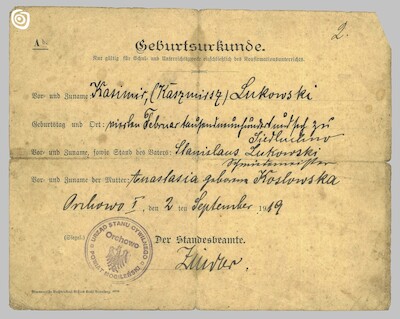 2.
A
Geburtsurkunde.
Nur gültig für Schul- und Unterrichtszwecke einschließlich des Konfirmandenunterrichts.
Vor- und Zuname Kasimir, (Kazmirsz) Lukowski
Geburtstag und Ort: vierten Februar tausendneunhundertundsechs zu
Siedluchno
Vor- und Zuname, sowie Stand des Vaters: Stanislaus Lukowski
Schmiedemeister
Vor- und Zuname der Mutter: Anastasia geborene Koslowska
Orchowo I, den 2 ten September 1919
(Siegel.) Der Standesbeamte.
URZĄD STANU CYWILNEGO
Orchowo
POWIAT MOGILEŃSKI